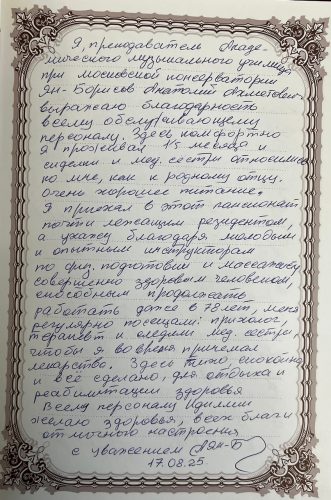 Я, преподаватель Акаде-
мического музыкального училища
при московской консерватории
Ян-Борисов Анатолий Ахметович
выражаю благодарность
всему обслуживающему
персоналу. Здесь комфортно
Я проживал 1,5 месяца и
сиделки и мед. сестри относились
ко мне, как к родному отцу.
Очень хорошее питание.
Я приехал в этот пансионат
почти лежащим резидентом,
а уехажу благодаря молодым
и опытным инструкторам
по физ. подготовки и массажису
совершенно здоровым человеком,
способным продолжать
работать даже в 78 лет, меня
регулярно посещали: психолог,
терапевт и следили мед. сестри,
чтобы я во время принемал
лекарство. Здесь тихо спокойно
и всё сделано, для отдыха и
реабилитации здоровья
Всему персоналу Идиллии
желаю здоровья, всех благ и
отличного настроения
с уважением АЯн-Б
17.08.25